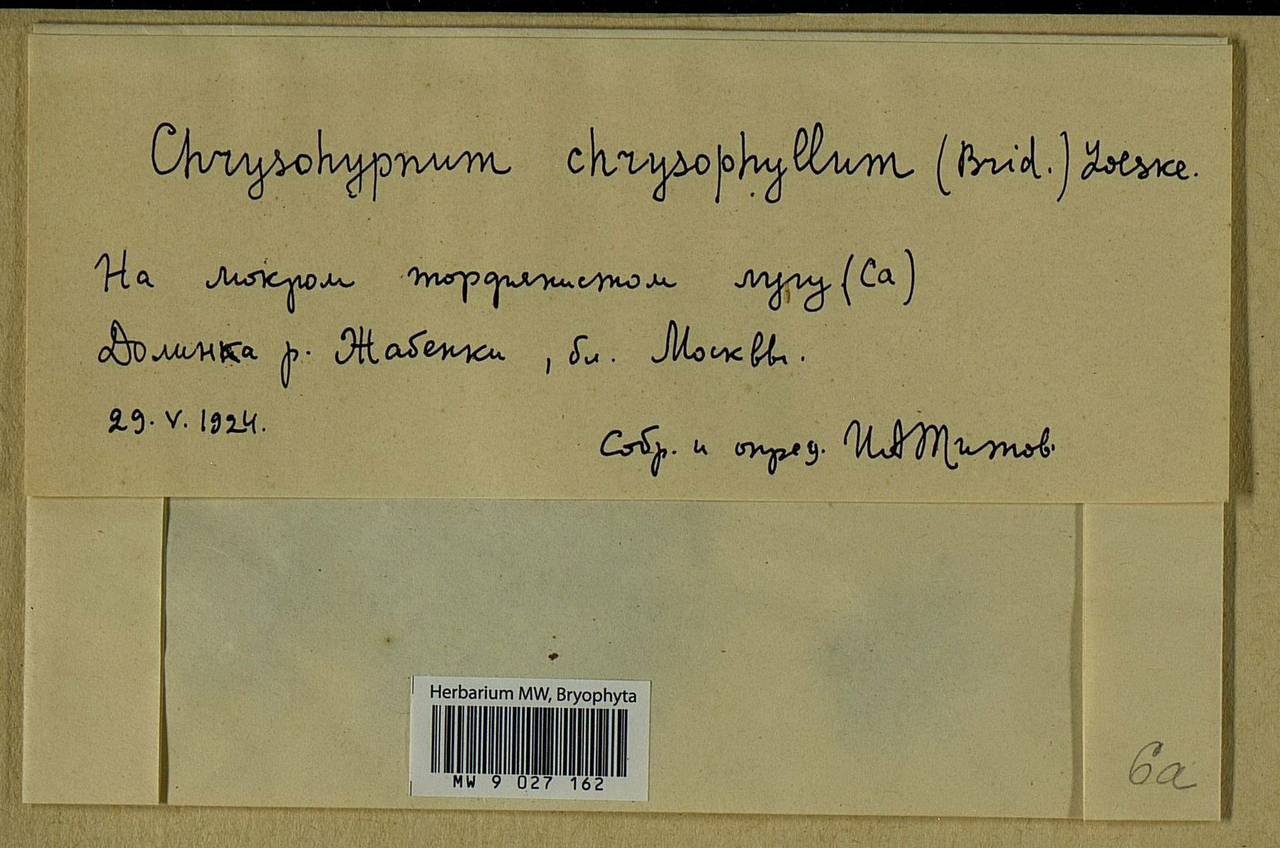 Chrysohypnum chrysophyllum (Brid.) Loeske.
На мокром торфянистом лугу (Ca)
Долинка р. Жабенки, бл. Москвы.
29. V. 1924.
Собр. и опред. И А Титов.
Herbarium MW, Bryophyta
MW 9 027 162
6a